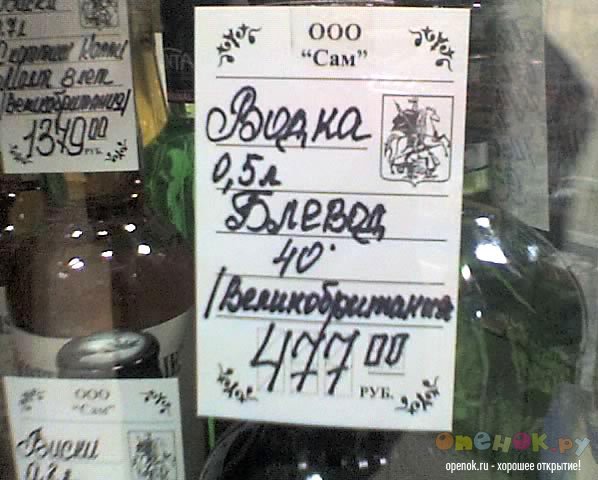 ООО
“Сам”
Водка
0,5л
Блевод
40°
/Великобритания
477 00
РУБ.
Виски
0,7л
Маля 8 лет
/Великобритания/
1379 00
РУБ.
ООО
“Сам”
Виски
опенок.ру
openok.ru - хорошее открытие!